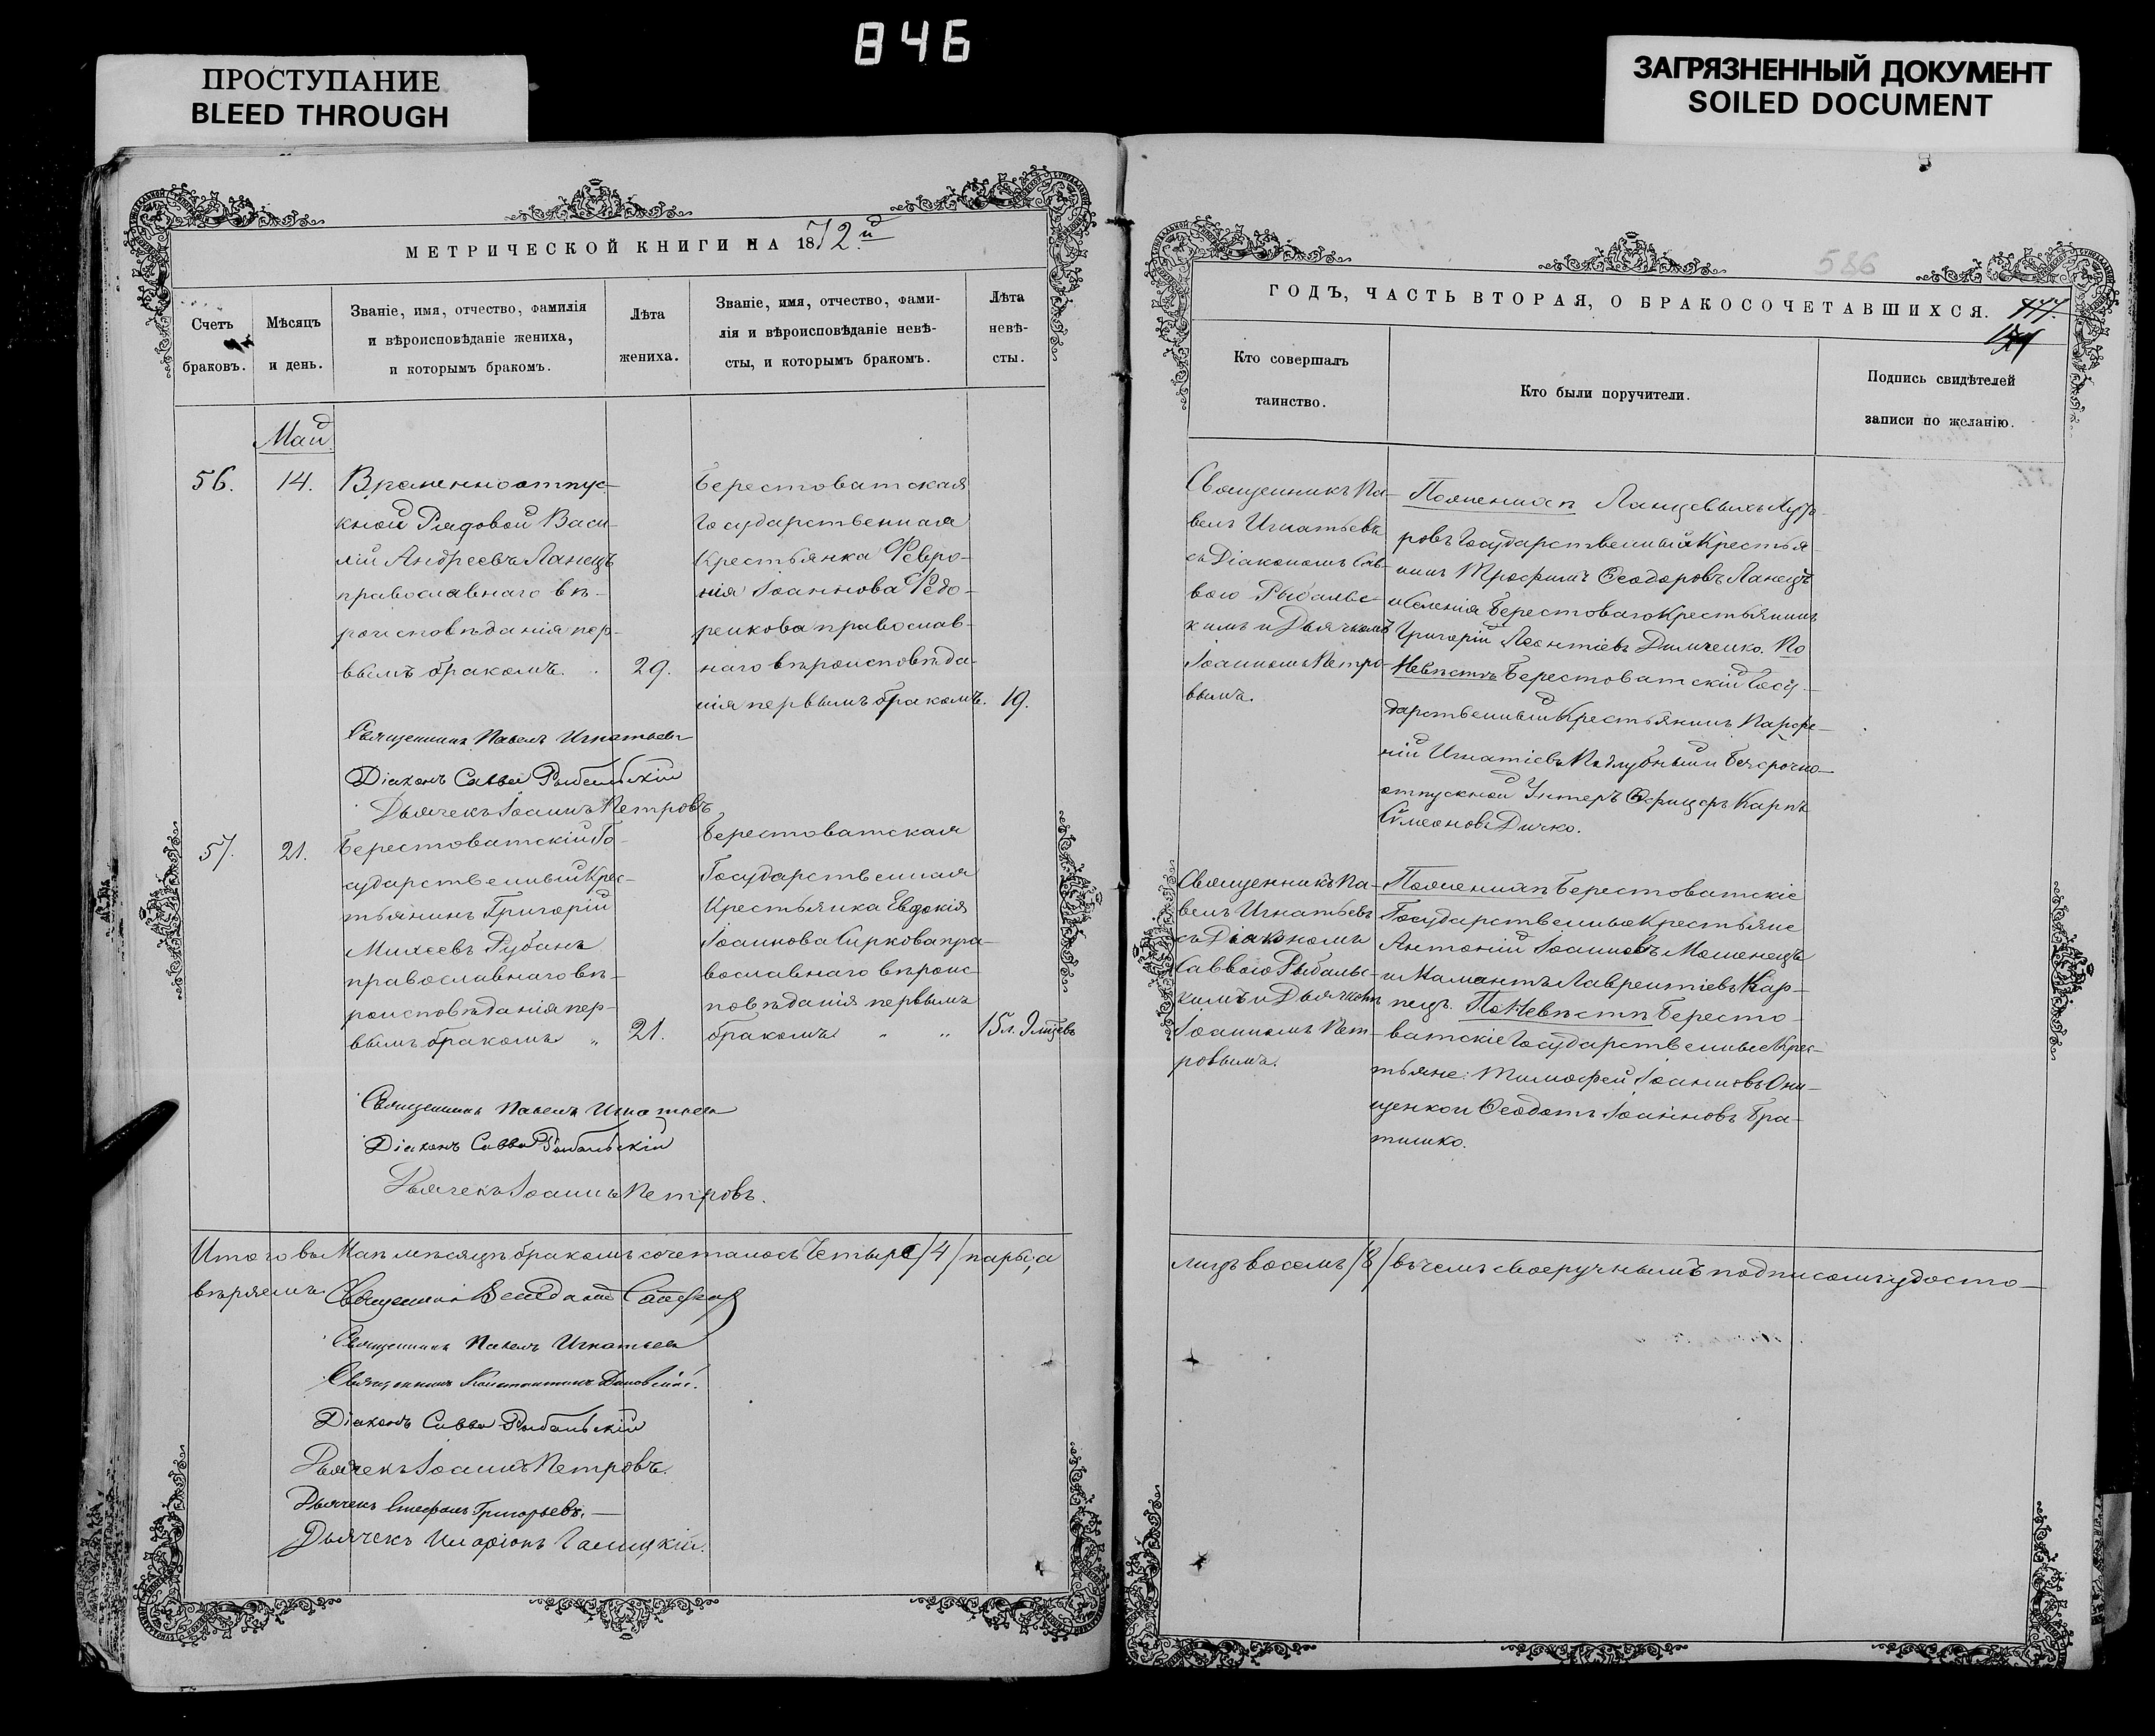 846
ПРОСТУПАНИЕ
BLEED THROUGH
ЗАГРЯЗНЕННЫЙ ДОКУМЕНТ
SOILED DOCUMENT
МЕТРИЧЕСКОЙ КНИГИ НА 1872й
Счетъ
браковъ.
Мѣсяцъ
и день.
Званіе, имя, отчество, фамилія
и вѣроисповѣданіе жениха,
и которымъ бракомъ.
Лѣта
жениха.
Званіе, имя, отчество, фами-
лія и вѣроисповѣданіе невѣ-
сты, и которымъ бракомъ.
Лѣта
невѣ-
сты.
Май
56.
14.
Временноотпус-
кной Рядовой Васи-
лій Андреевъ Ланецъ
православнаго вѣ-
роисповѣданія пер-
вымъ бракомъ.
29.
Берестоватская
Государственная
Крестьянка Февро-
нія Іоаннова Федо-
ренкова православ-
наго вѣроисповѣда-
нія первымъ бракомъ.
19.
Священникъ Павелъ Игнатьевъ
Діаконъ Савва Рыбальскій
Дьячекъ Іоаннъ Петровъ
57.
21.
Берестоватскій Го-
сударственный Крес-
тьянинъ Григорій
Михеевъ Рубанъ
православнаго вѣ-
роисповѣданія пер-
вымъ бракомъ „
21.
Берестоватская
Государственная
Крестьянка Евдокія
Іоаннова Сиркова пра-
вославнаго вѣроис-
повѣданія первымъ
бракомъ „ „
15 л.
Священникъ Павелъ Игнатьевъ
Діаконъ Савва Рыбальскій
Дьячекъ Іоаннъ Петровъ.
Итого въ Маѣ мѣсяцѣ бракомъ сочеталось Четыре /4/ пары, а
вѣряемъ Священникъ
Священникъ Павелъ Игнатьевъ
Священникъ Константинъ
Діаконъ Савва Рыбальскій
Дьячекъ Іоаннъ Петровъ.
Дьячекъ Стефанъ Григорьевъ.
Дьячекъ Иларіонъ Галицкій.
586
ГОДЪ, ЧАСТЬ ВТОРАЯ, О БРАКОСОЧЕТАВШИХСЯ. 177.
Кто совершалъ
таинство.
Кто были поручители.
Подпись свидѣтелей
записи по желанію.
Священникъ Па-
велъ Игнатьевъ
съ Діакономъ Сав-
вою Рыбальс-
кимъ и Дьячкомъ
Іоанномъ Петро-
вымъ.
По женихѣ Ланцевыхъ Хуто-
ровъ Государственный Крестья-
нинъ Трофимъ Ѳеодоровъ Ланецъ
и Селенія Берестоваго Крестьянинъ
Григорій Леонтіевъ Димченко. По
Невѣстѣ Берестоватскій Госу-
дарственный Крестьянинъ Парфе-
ній Игнатіевъ Поддубный и Безсрочно-
отпускной Унтеръ Офицеръ Карпъ
Симеоновъ Дичко.
Священникъ Па-
велъ Игнатьевъ
съ Діакономъ
Саввою Рыбальс-
кимъ и Дьячкомъ
Іоанномъ Пет-
ровымъ.
По женихѣ Берестоватскіе
Государственные Крестьяне
Антоній Іоанновъ Мошенецъ
и Мамантъ Лаврентіевъ Кар-
пецъ. По Невѣстѣ Бересто-
ватскіе Государственные Крес-
тьяне: Тимофей Іоанновъ Они-
щенко и Ѳеодотъ Іоанновъ Бра-
тишко.
лицъ восемь /8/ въ чемъ своеручнымъ подписомъ удосто-